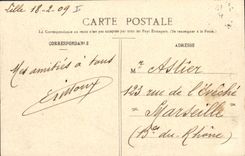 Lille 18-2-09
CARTE POSTALE
La Correspondance au recto n'est pas acceptée par tous les Pays Étrangers. (Se renseigner à la Poste.)
CORRESPONDANCE
ADRESSE
Mes amitiés à tous
Mr Astier
123 rue de l'Évêché
Marseille
(Bes du Rhône)